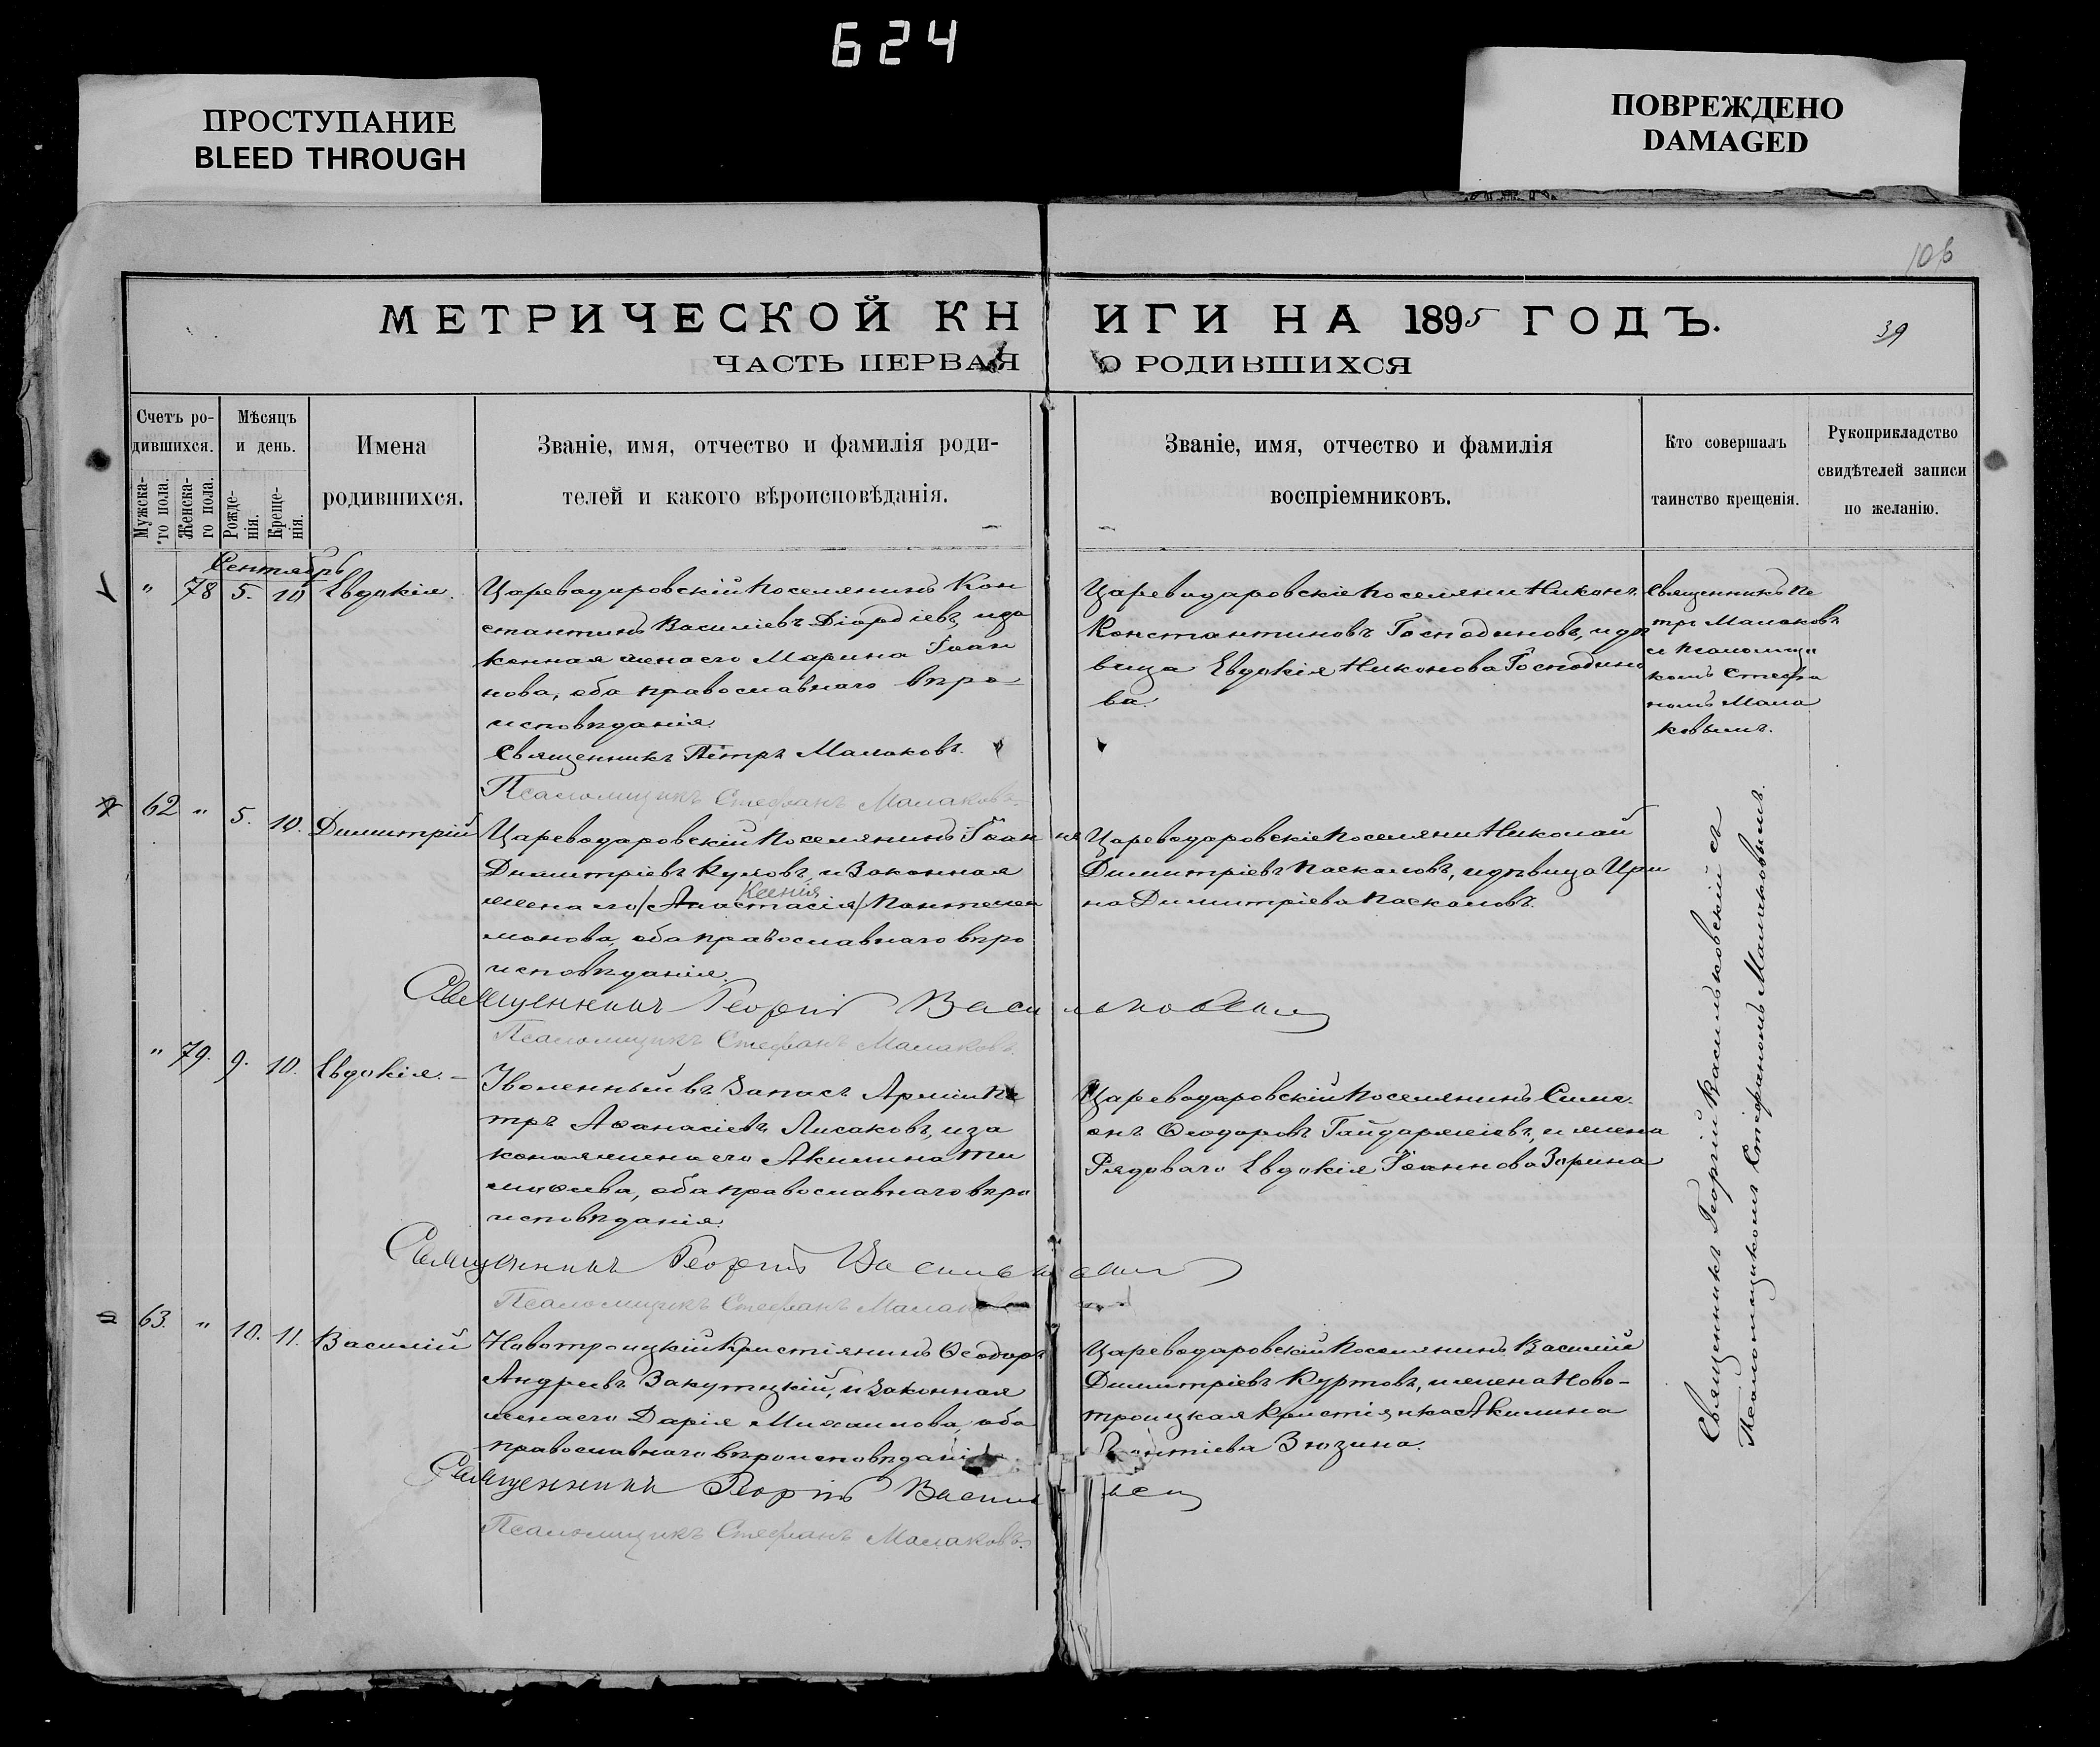 624
ПРОСТУПАНИЕ
BLEED THROUGH
ПОВРЕЖДЕНО
DAMAGED
106
МЕТРИЧЕСКОЙ КНИГИ НА 1895 ГОДЪ.
39
ЧАСТЬ ПЕРВАЯ О РОДИВШИХСЯ
Счетъ ро-
дившихся.
Мужска-
го пола.
Женска-
го пола.
Мѣсяцъ
и день.
Рожде-
нія.
Креще-
нія.
Имена
родившихся.
Званіе, имя, отчество и фамилія роди-
телей и какого вѣроисповѣданія.
Званіе, имя, отчество и фамилія
воспріемниковъ.
Кто совершалъ
таинство крещенія.
Рукоприкладство
свидѣтелей записи
по желанію.
Сентябрь
" 78 5. 10 Евдокія.
Царевадаровскій поселянинъ Кон
стантинъ Василіевъ Діордіевъ, иза
конная жена его Марина Іоан
нова, оба православнаго вѣро
исповѣданія.
Священникъ Петръ Малаковъ.
Псаломщикъ Стефанъ Малаковъ.
Царевадаровскіе поселяни Никонъ
Константиновъ Господиновъ, и дѣ
вица Евдокія Никонова Господино
ва.
Священникъ Пе
тръ Малаковъ
съ псаломщи
комъ Стефа
номъ Мала
ковымъ.
62 " 5. 10. Димитрій
Царевадаровскій поселянинъ Іоан
Димитріевъ Куловъ, и законная
Ксенія
жена его (Анастасія) Пантелеи
монова, оба православнаго вѣро
исповѣданія.
Священникъ Георгій Васильковскій
Псаломщикъ Стефанъ Малаковъ.
Царевадаровскіе поселяни Николай
Димитріевъ Паскаловъ, и дѣвица Ири
на Димитріева Паскаловъ.
" 79. 9. 10. Евдокія.
Уволенный въ запасъ Арміи Пе
тръ Аѳанасіевъ Лисаковъ, иза
коная жена его Акилина Ти
моѳеева, оба православнаго вѣро
исповѣданія.
Священникъ Георгій Васильковскій
Псаломщикъ Стефанъ Малаковъ
Царевадаровскій поселянинъ Симе
онъ Ѳеодоровъ Гайдаржіевъ, и жена
Рядоваго Евдокія Іоаннова Зорина
63. " 10. 11. Василій
Новотроицкій Кристіянинъ Ѳеодоръ
Андреевъ Закутцкій, и законная
жена его Дарія Михаилова, оба
православнаго вѣроисповѣданія
Священникъ Георгій Васильковскій
Псаломщикъ Стефанъ Малаковъ.
Царевадаровскій поселянинъ Василій
Димитріевъ Куртовъ, и жена Ново-
троицкая Кристіянка Акилина
Зюзина.
Священникъ Георгій Васильковскій съ
Псаломщикомъ Стефаномъ Малаковымъ.